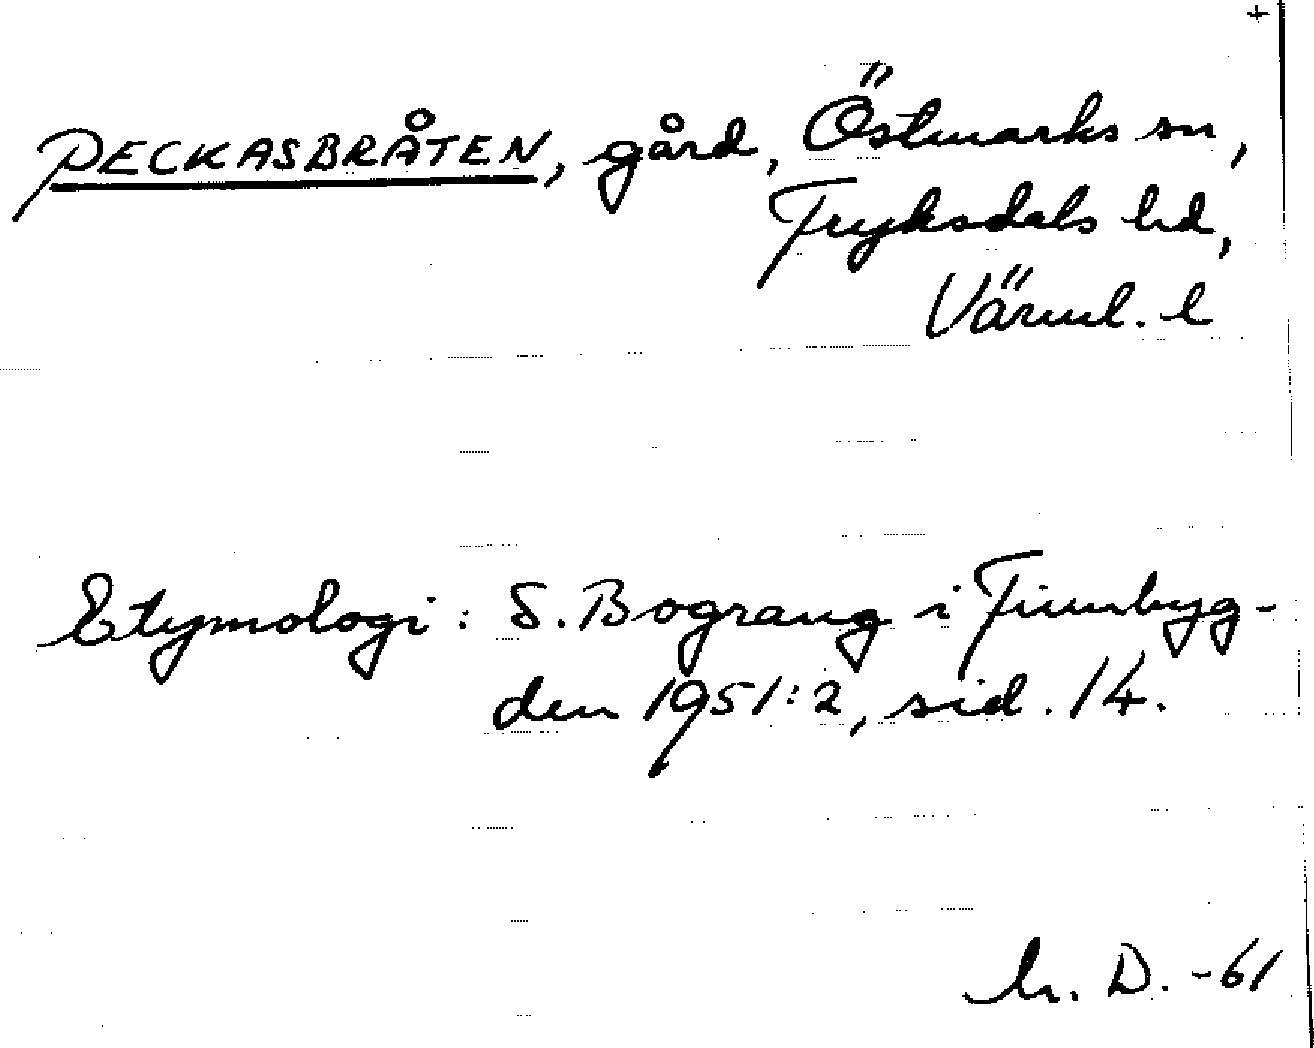 +
PECKASBRÅTEN, gård, Östmarks sn,
Fryksdals hd,
Värml. l
Etymologi: S. Bograng i Finnbyg-
den 1951:2, sid. 14.
D. -61